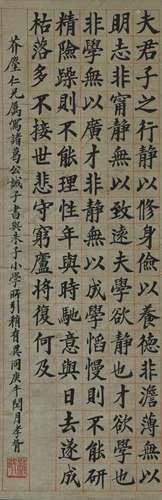 夫君子之行靜以修身儉以養德非澹薄無以
明志非甯靜無以致遠夫學欲靜也才欲學也
非學無以廣才非靜無以成學慆慢則不能研
精險躁則不能理性年與時馳意與日去遂成
枯落多不接世悲守窮廬將復何及
仁兄屬寫諸葛公誡子書與朱子小學所引稍有異同庚午閏月孝胥